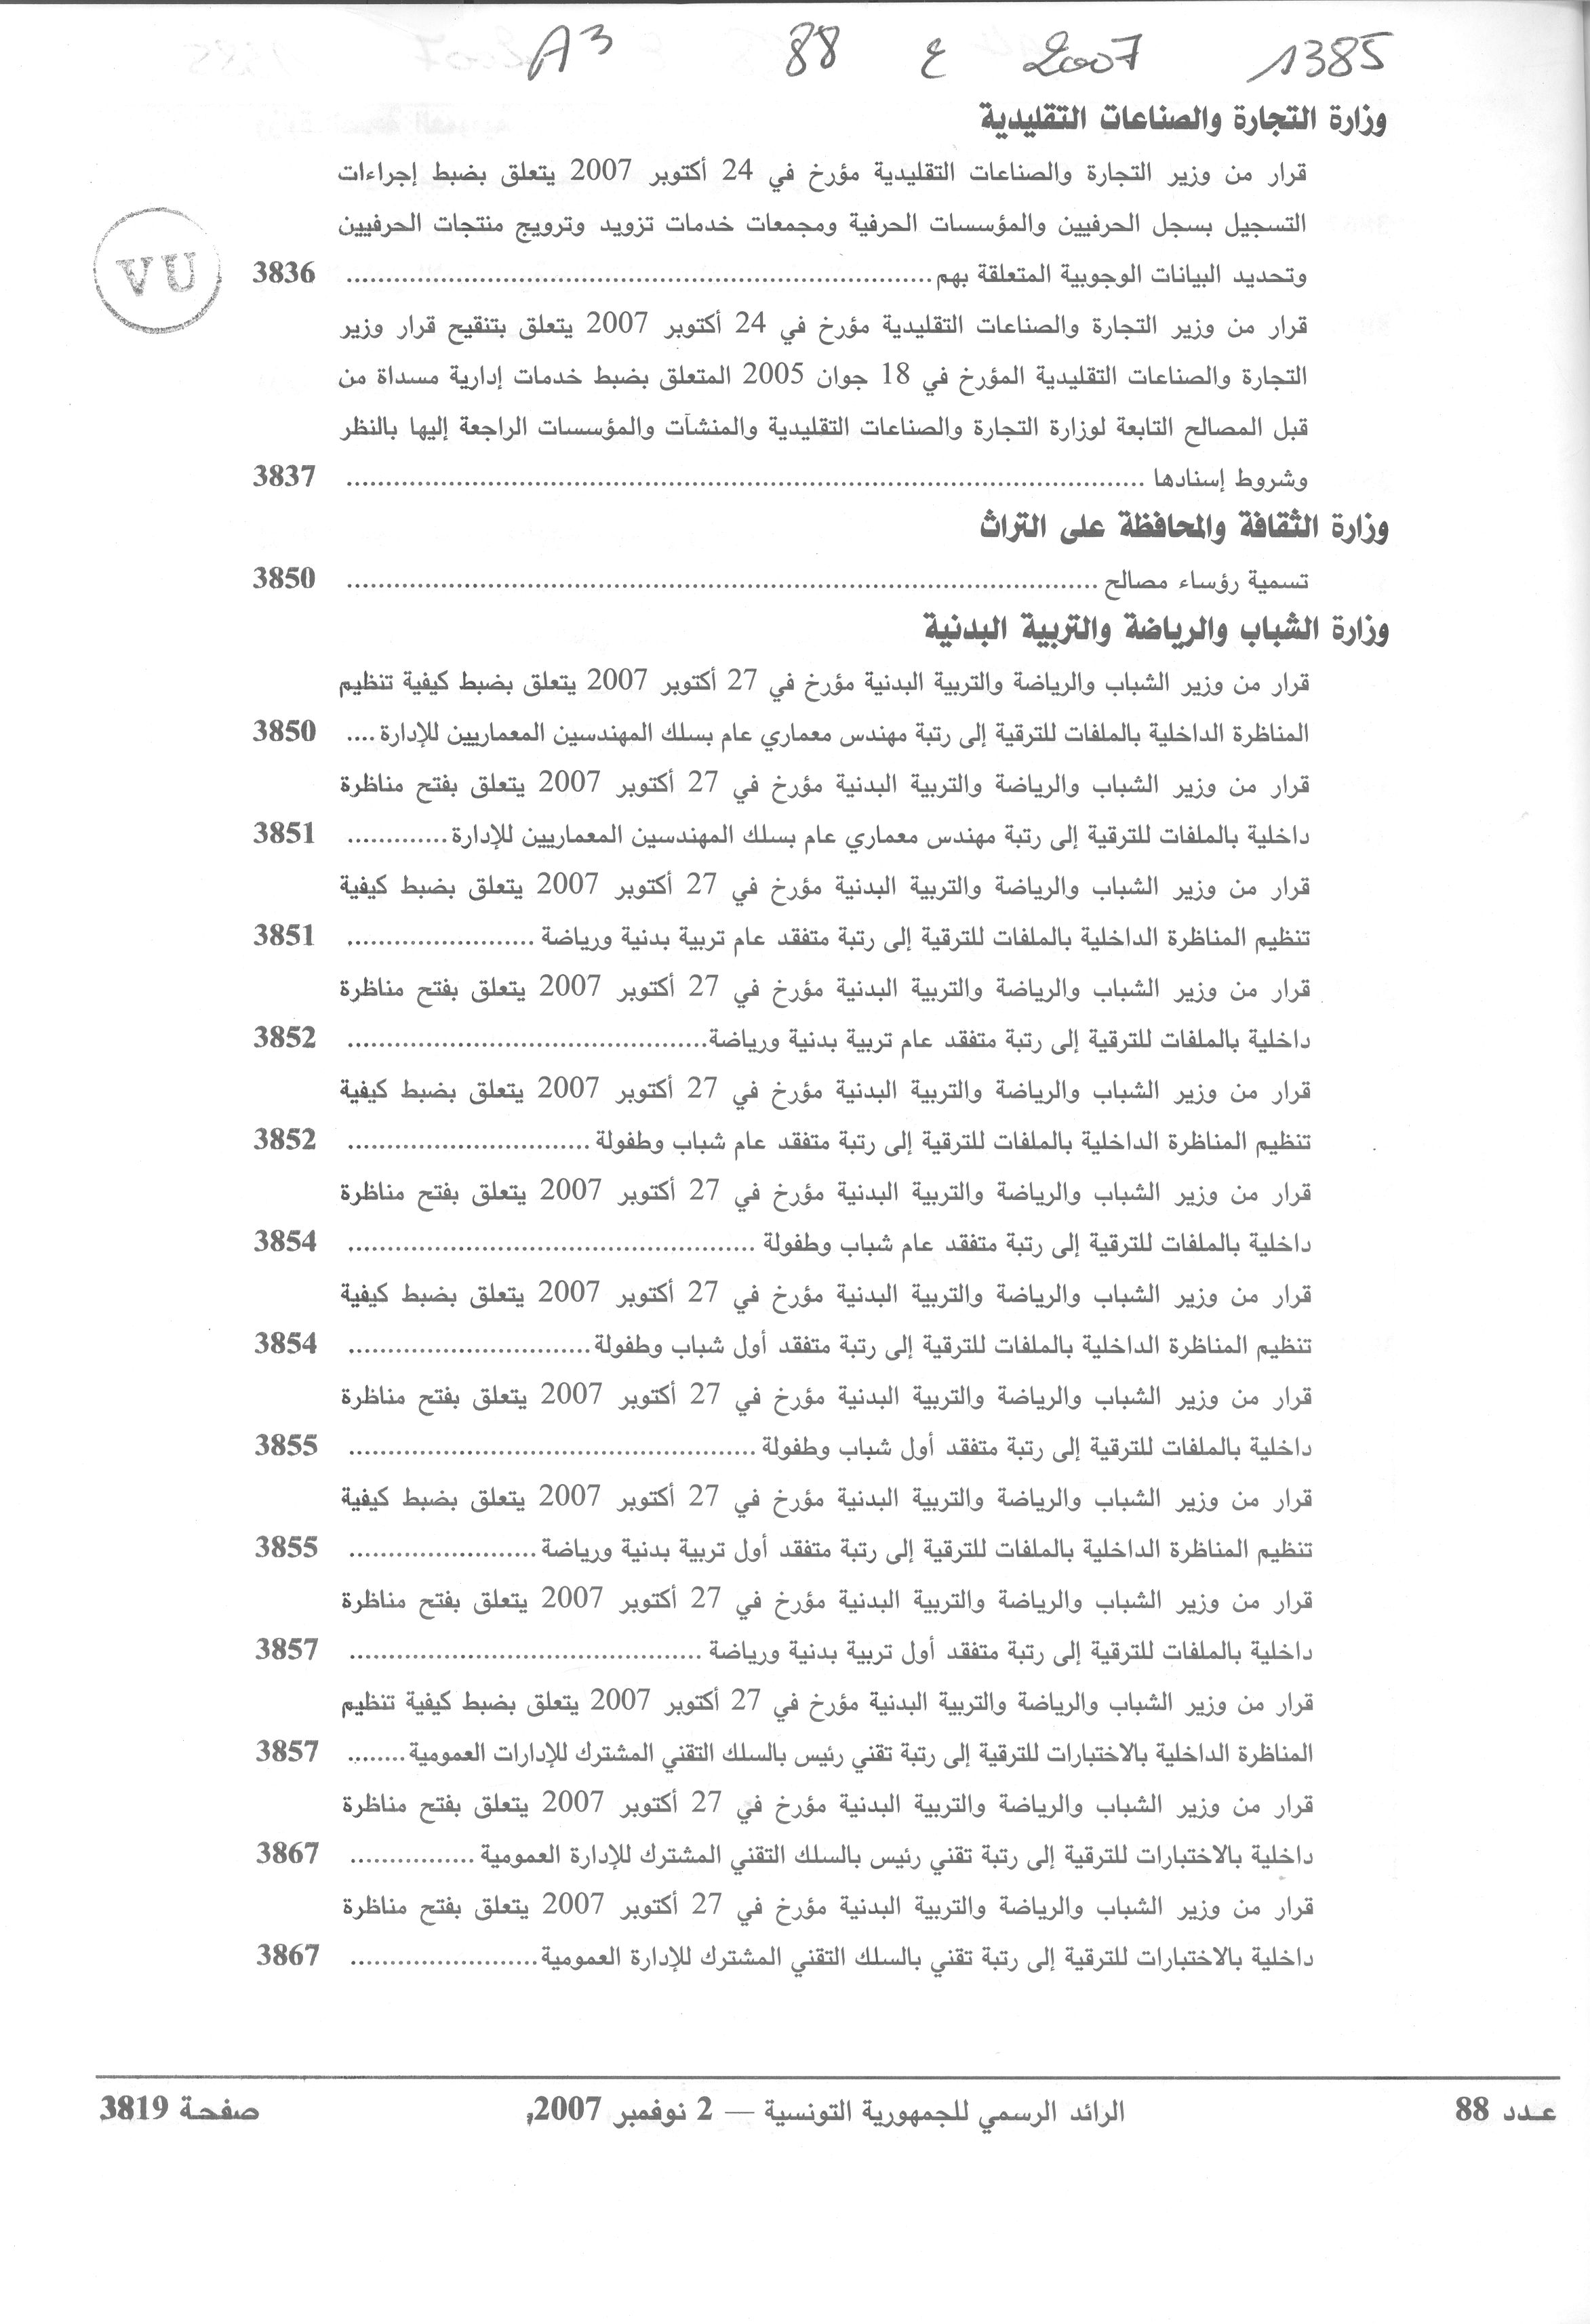 A3 88 ع 2007 1385
وزارة التجارة والصناعات التقليدية
قرار من وزير التجارة والصناعات التقليدية مؤرخ في 24 أكتوبر 2007 يتعلق بضبط إجراءات
التسجيل بسجل الحرفيين والمؤسسات الحرفية ومجمعات خدمات تزويد وترويج منتجات الحرفيين
وتحديد البيانات الوجوبية المتعلقة بهم................ 3836
VU
قرار من وزير التجارة والصناعات التقليدية مؤرخ في 24 أكتوبر 2007 يتعلق بتنقيح قرار وزير
التجارة والصناعات التقليدية المؤرخ في 18 جوان 2005 المتعلق بضبط خدمات إدارية مسداة من
قبل المصالح التابعة لوزارة التجارة والصناعات التقليدية والمنشآت والمؤسسات الراجعة إليها بالنظر
وشروط إسنادها ................ 3837
وزارة الثقافة والمحافظة على التراث
تسمية رؤساء مصالح ................ 3850
وزارة الشباب والرياضة والتربية البدنية
قرار من وزير الشباب والرياضة والتربية البدنية مؤرخ في 27 أكتوبر 2007 يتعلق بضبط كيفية تنظيم
المناظرة الداخلية بالملفات للترقية إلى رتبة مهندس معماري عام بسلك المهندسين المعماريين للإدارة .... 3850
قرار من وزير الشباب والرياضة والتربية البدنية مؤرخ في 27 أكتوبر 2007 يتعلق بفتح مناظرة
داخلية بالملفات للترقية إلى رتبة مهندس معماري عام بسلك المهندسين المعماريين للإدارة............. 3851
قرار من وزير الشباب والرياضة والتربية البدنية مؤرخ في 27 أكتوبر 2007 يتعلق بضبط كيفية
تنظيم المناظرة الداخلية بالملفات للترقية إلى رتبة متفقد عام تربية بدنية ورياضة ................ 3851
قرار من وزير الشباب والرياضة والتربية البدنية مؤرخ في 27 أكتوبر 2007 يتعلق بفتح مناظرة
داخلية بالملفات للترقية إلى رتبة متفقد عام تربية بدنية ورياضة................ 3852
قرار من وزير الشباب والرياضة والتربية البدنية مؤرخ في 27 أكتوبر 2007 يتعلق بضبط كيفية
تنظيم المناظرة الداخلية بالملفات للترقية إلى رتبة متفقد عام شباب وطفولة ................ 3852
قرار من وزير الشباب والرياضة والتربية البدنية مؤرخ في 27 أكتوبر 2007 يتعلق بفتح مناظرة
داخلية بالملفات للترقية إلى رتبة متفقد عام شباب وطفولة ................ 3854
قرار من وزير الشباب والرياضة والتربية البدنية مؤرخ في 27 أكتوبر 2007 يتعلق بضبط كيفية
تنظيم المناظرة الداخلية بالملفات للترقية إلى رتبة متفقد أول شباب وطفولة................ 3854
قرار من وزير الشباب والرياضة والتربية البدنية مؤرخ في 27 أكتوبر 2007 يتعلق بفتح مناظرة
داخلية بالملفات للترقية إلى رتبة متفقد أول شباب وطفولة ................ 3855
قرار من وزير الشباب والرياضة والتربية البدنية مؤرخ في 27 أكتوبر 2007 يتعلق بضبط كيفية
تنظيم المناظرة الداخلية بالملفات للترقية إلى رتبة متفقد أول تربية بدنية ورياضة................ 3855
قرار من وزير الشباب والرياضة والتربية البدنية مؤرخ في 27 أكتوبر 2007 يتعلق بفتح مناظرة
داخلية بالملفات للترقية إلى رتبة متفقد أول تربية بدنية ورياضة ................ 3857
قرار من وزير الشباب والرياضة والتربية البدنية مؤرخ في 27 أكتوبر 2007 يتعلق بضبط كيفية تنظيم
المناظرة الداخلية بالاختبارات للترقية إلى رتبة تقني رئيس بالسلك التقني المشترك للإدارات العمومية........ 3857
قرار من وزير الشباب والرياضة والتربية البدنية مؤرخ في 27 أكتوبر 2007 يتعلق بفتح مناظرة
داخلية بالاختبارات للترقية إلى رتبة تقني رئيس بالسلك التقني المشترك للإدارة العمومية ................ 3867
قرار من وزير الشباب والرياضة والتربية البدنية مؤرخ في 27 أكتوبر 2007 يتعلق بفتح مناظرة
داخلية بالاختبارات للترقية إلى رتبة تقني بالسلك التقني المشترك للإدارة العمومية................ 3867
عـدد 88 الرائد الرسمي للجمهورية التونسية — 2 نوفمبر 2007 صفحـة 3819